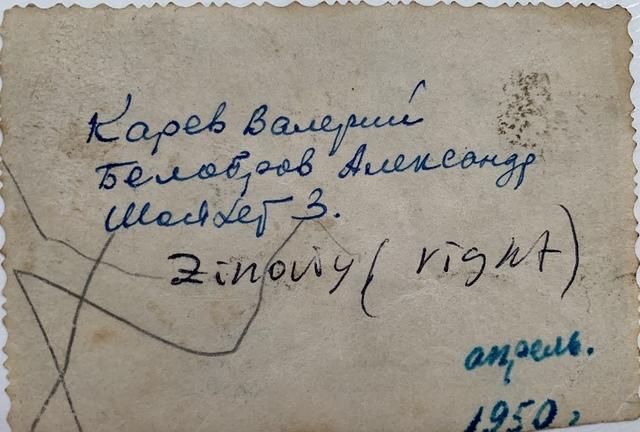 Карев Валерий
Белобров Александр
З.
Zinoviy (right)
апрель.
1950г